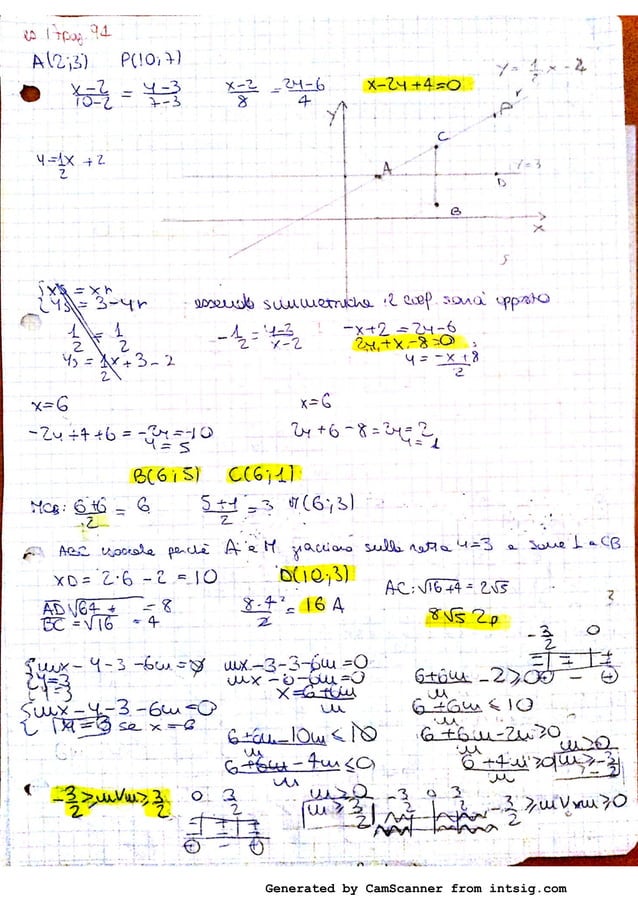 es 17 pag. 91
A(2;3) P(10,7)
x-2/10-2 = y-3/7-3 x-2/8 = 2y-6/4 x-2y+4=0
y = 1/2 x - 2
y = 1/2 x + 2
Y r P
C
A y=3
D
B
x
{xs = xr
{ys = 3-yr essendo simmetriche il coef. sarà opposto
1/2 = 1/2 -1/2 = y-3/x-2 -x+2 = 2y-6
2y+x-8=0
ys = 1/2 x+3-2 y = -x+8/2
x=6 x=6
-2y+4+6 = -2y=-10 2y+6-8=2y=2
y=5 y=1
B(6;5) C(6;1)
MCB: 6+6/2 = 6 5+1/2 = 3 M(6;3)
ABC isoscele perchè A e M giacciono sulla retta y=3 e sono ⊥ a CB
xD = 2·6-2 = 10 D(10;3)
AC: √16+4 = 2√5
AD √64 + = 8 8·4/2 = 16 A 8√5 2p
BC = √16 = 4
-3/2 0
{mx-y-3-6m=0 mx-3-3-6m=0
{y=3 mx-6-6m=0 6+6m/m - 2 ≥0
y=3 x=6+6m/m
{mx-y-3-6m=0 6+6m/m ≤ 10
se x=6
6+6m-10m/m ≤ 0 6+6m-2m/m ≥0 m>0
6+6m-4m/m ≤0 6+4m/m ≥0 m≥-3/2
-3/2 ≥m∨m≥ 3/2 0 3/2 m>0 -3/2 0 3/2
m≥ 3/2 -3/2 ≥m∨m≥0
Generated by CamScanner from intsig.com